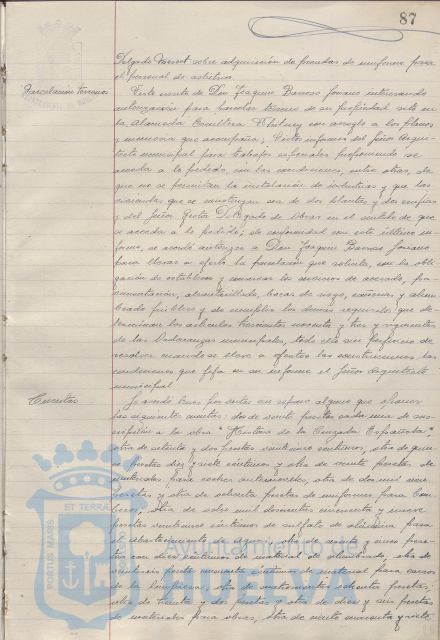 87
Delgado Merset sobre adquisición de prendas de uniforme para
el personal de arbitrios.
Parcelación terrenos
Visto escrito de Don Joaquin Barroso Soriano interesando
autorización para parcelar terrenos de su propiedad sito en
la Alameda Sundheim con arreglo a los planos
y memoria que acompaña; Visto informe del Señor Arqui-
tecto municipal para trabajos especiales proponiendo se
acceda a lo pedido, con las condiciones, entre otras, de
que no se permitan la instalación de industrias y que las
viviendas que se construyan sea de dos plantas y
y del Señor Gestor Delegado de Obras en el sentido de que
se acceda a lo pedido; de conformidad con este último in-
forme, se acordó autorizar a Don Joaquin Barroso Soriano
para llevar a efecto la parcelación que solicita, con la obli-
gación de establecer y los servicios de acerado, pa-
vimentación, alcantarillado, bocas de riego, cañerias y alum-
brado público y de cumplir los demás requisitos que de-
terminan los articulos trescientos noventa y tres y siguientes
de las Ordenanzas municipales, todo ello sin perjuicio de
resolver cuando se lleve a efecto las construcciones las
condiciones que fija en su informe el Señor Arquitecto
municipal.
Cuentas
Se acordó tras ser vistas sin reparo alguno que
las siguientes cuentas: dos de veinte pesetas cada una de sus-
cripción a la obra "Historia de la Cruzada Española",
otra de setenta y dos pesetas veintinueve centimos, otra de quin-
ce pesetas diez y siete centimos y otra de veinte pesetas de
materiales para coches automoviles, otra de dos mil nueve
pesetas y otra de sesenta pesetas de uniformes para bom-
beros, otra de ocho mil doscientas cincuenta y nueve
pesetas veintinueve centimos de sulfato de alumina para
el abastecimiento de aguas, otra de treinta y cinco pese-
tas con diez centimos de material de alumbrado, otra de
veintiseis pesetas noventa centimos de material para carros
de la limpieza, otra de cuatrocientas setenta pesetas,
otra de treinta y dos pesetas y otra de diez y seis pesetas
de materiales para obras, otra de ciento cincuenta y ocho
PORTUS MARIS ET TERRAE CUSTODIA
Ayuntamiento de
HUELVA